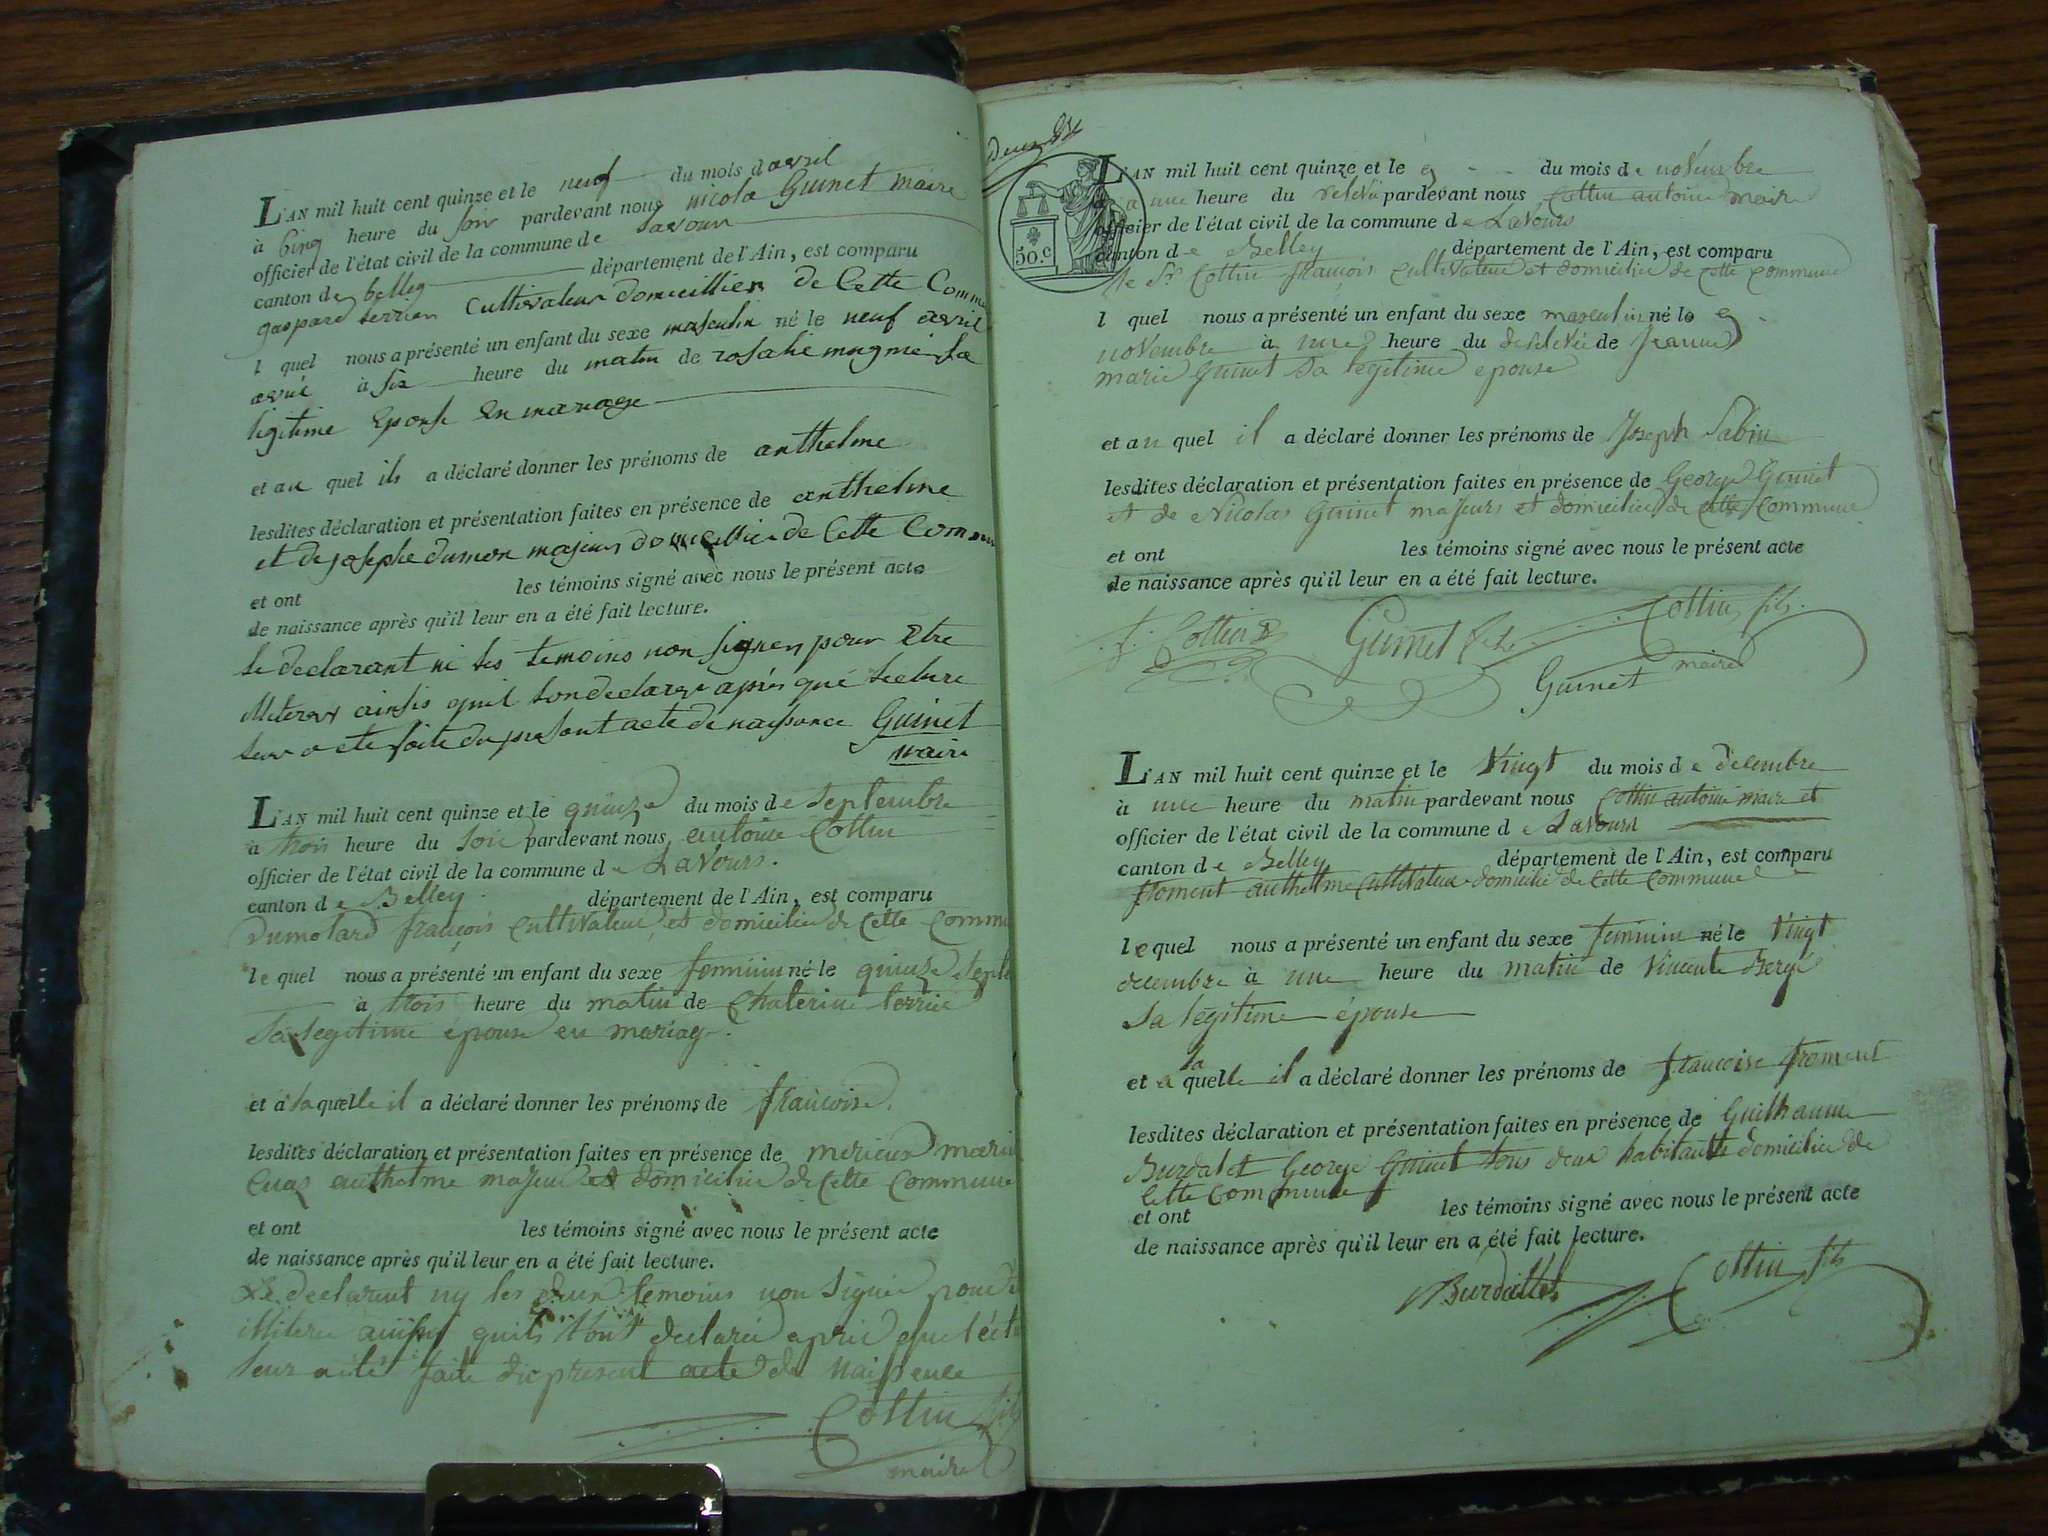 L'AN mil huit cent quinze et le neuf du mois d avril
à cinq heure du soir pardevant nous nicola Guinet maire
officier de l'état civil de la commune de Lavour
canton de belley département de l'Ain, est comparu
gaspard terrier Cultivateur domicillier de Cette Comm
l quel nous a présenté un enfant du sexe masculin né le neuf avril
avril à six heure du matin de rosalie mugnier sa
ligitime Epouse En mariage
et au quel ils a déclaré donner les prénoms de anthelme
lesdites déclaration et présentation faites en présence de anthelme
et de josephe dumon majeurs domicillié de Cette Commu
et ont les témoins signé avec nous le présent acte
de naissance après qu'il leur en a été fait lecture.
le declarant ni les temoins non signer pour Etre
illiterer ainsis quil lon declarer après que lecture
leur a ete faite du present acte de naissance Guinet
maire
L'AN mil huit cent quinze et le quinze du mois de septembre
à trois heure du soir pardevant nous antoine Cottin
officier de l'état civil de la commune de LaVours.
canton de Belley département de l'Ain, est comparu
Dumolard françois Cultivateur et domicilié de Cette Commu
le quel nous a présenté un enfant du sexe feminin né le quinze septe
à trois heure du matin de Chaterine terrier
Sa legitime épouse en mariage.
et à la quelle il a déclaré donner les prénoms de françoise
lesdites déclaration et présentation faites en présence de merieux marie
Cuas anthelme majeur et domicilié de Cette Commune
et ont les témoins signé avec nous le présent acte
de naissance après qu'il leur en a été fait lecture.
Le declarant ny les deux temoins non signé pour
illiteré ainsy quils l'ont declaré après que léctu
leur a été faite du present acte de naissence
Cottin fils
maire
50.C
L'AN mil huit cent quinze et le 9 du mois de noVembre
à une heure du relevé pardevant nous Cottin antoine maire
officier de l'état civil de la commune de LaVours
canton de Belley département de l'Ain, est comparu
le Sr Cottin françois Cultivateur et domicilié de Cette Commune
l quel nous a présenté un enfant du sexe masculin né le 9
noVembre à une heure du de reléVée de Jeanne
marie Guinet Sa legitime epouse
et au quel il a déclaré donner les prénoms de Joseph Sabin
lesdites déclaration et présentation faites en présence de George Guinet
et de Nicolas Guinet majeurs et domicilié de Cette Commune
et ont les témoins signé avec nous le présent acte
de naissance après qu'il leur en a été fait lecture.
f. Cottin Guinet Cottin fils.
Guinet maire
L'AN mil huit cent quinze et le Vingt du mois de decembre
à une heure du matin pardevant nous Cottin antoine maire et
officier de l'état civil de la commune de LaVours
canton de Belley département de l'Ain, est comparu
froment anthelme Cultivateur domicilié de Cette Commune
lequel nous a présenté un enfant du sexe feminin né le Vingt
decembre à une heure du matin de Vincente Berge
Sa légitime épouse
et a la quelle il a déclaré donner les prénoms de francoise froment
lesdites déclaration et présentation faites en présence de Guilhaume
Burdalet George Guinet tous deux habitants domicilié de
Cette Commune
et ont les témoins signé avec nous le présent acte
de naissance après qu'il leur en a été fait lecture.
Burdallet Cottin fils